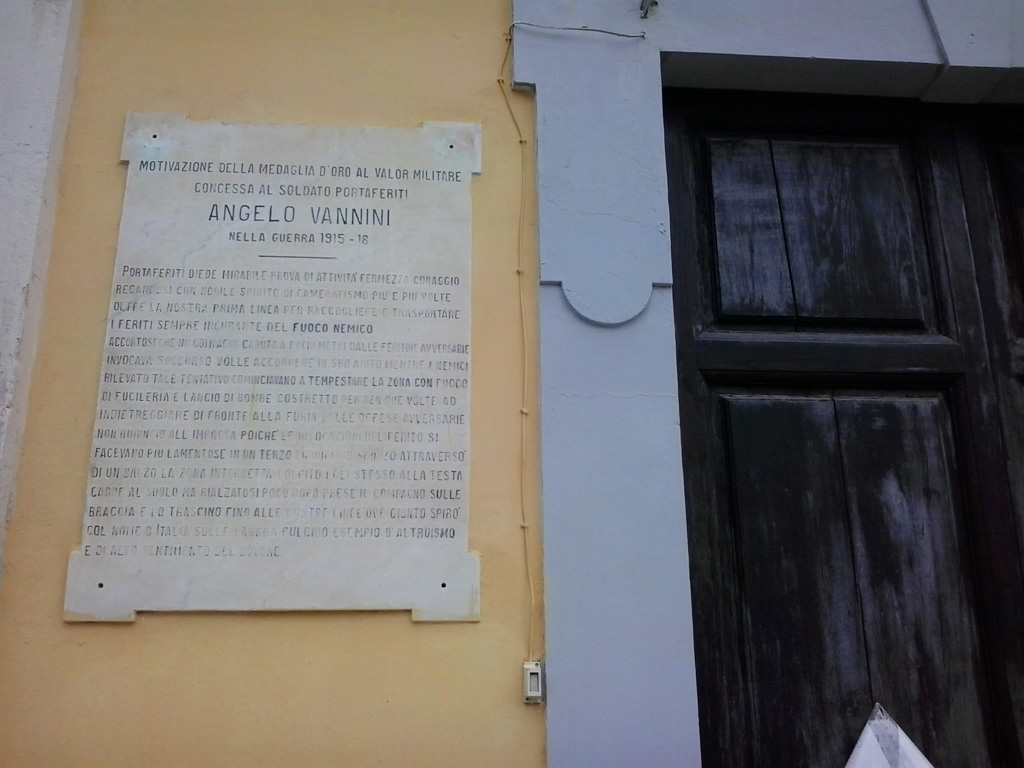 MOTIVAZIONE DELLA MEDAGLIA D'ORO AL VALOR MILITARE
CONCESSA AL SOLDATO PORTAFERITI
ANGELO VANNINI
NELLA GUERRA 1915-18
PORTAFERITI DIEDE MIRABILE PROVA DI ATTIVITÀ FERMEZZA CORAGGIO
RECANDOSI CON NOBILE SPIRITO DI CAMERATISMO PIÙ E PIÙ VOLTE
OLTRE LA NOSTRA PRIMA LINEA PER RACCOGLIERE E TRASPORTARE
I FERITI SEMPRE INCURANTE DEL FUOCO NEMICO
ACCORTOSI CHE UN COMPAGNO CADUTO A POCHI METRI DALLE FERITOIE AVVERSARIE
INVOCAVA SOCCORSO VOLLE ACCORRERE IN SUO AIUTO MENTRE I NEMICI
RILEVATO TALE TENTATIVO COMINCIAVANO A TEMPESTARE LA ZONA CON FUOCO
DI FUCILERIA E LANCIO DI BOMBE COSTRETTO PER BEN DUE VOLTE AD
INDIETREGGIARE DI FRONTE ALLA FURIA DELLE OFFESE AVVERSARIE
NON RINUNCIÒ ALL IMPRESA POICHÈ LE INVOCAZIONI DEL FERITO SI
FACEVANO PIÙ LAMENTOSE IN UN TERZO ATTRAVERSÒ
DI UN BALZO LA ZONA INTERDETTA COLPITO EGLI STESSO ALLA TESTA
CADDE AL SUOLO MA RIALZATOSI POCO DOPO PRESE IL COMPAGNO SULLE
BRACCIA E LO TRASCINÒ FINO ALLE NOSTRE LINEE OVE GIUNTO SPIRÒ
COL NOME D'ITALIA SULLE LABBRA FULGIDO ESEMPIO D'ALTRUISMO
E DI ALTO SENTIMENTO DEL DOVERE